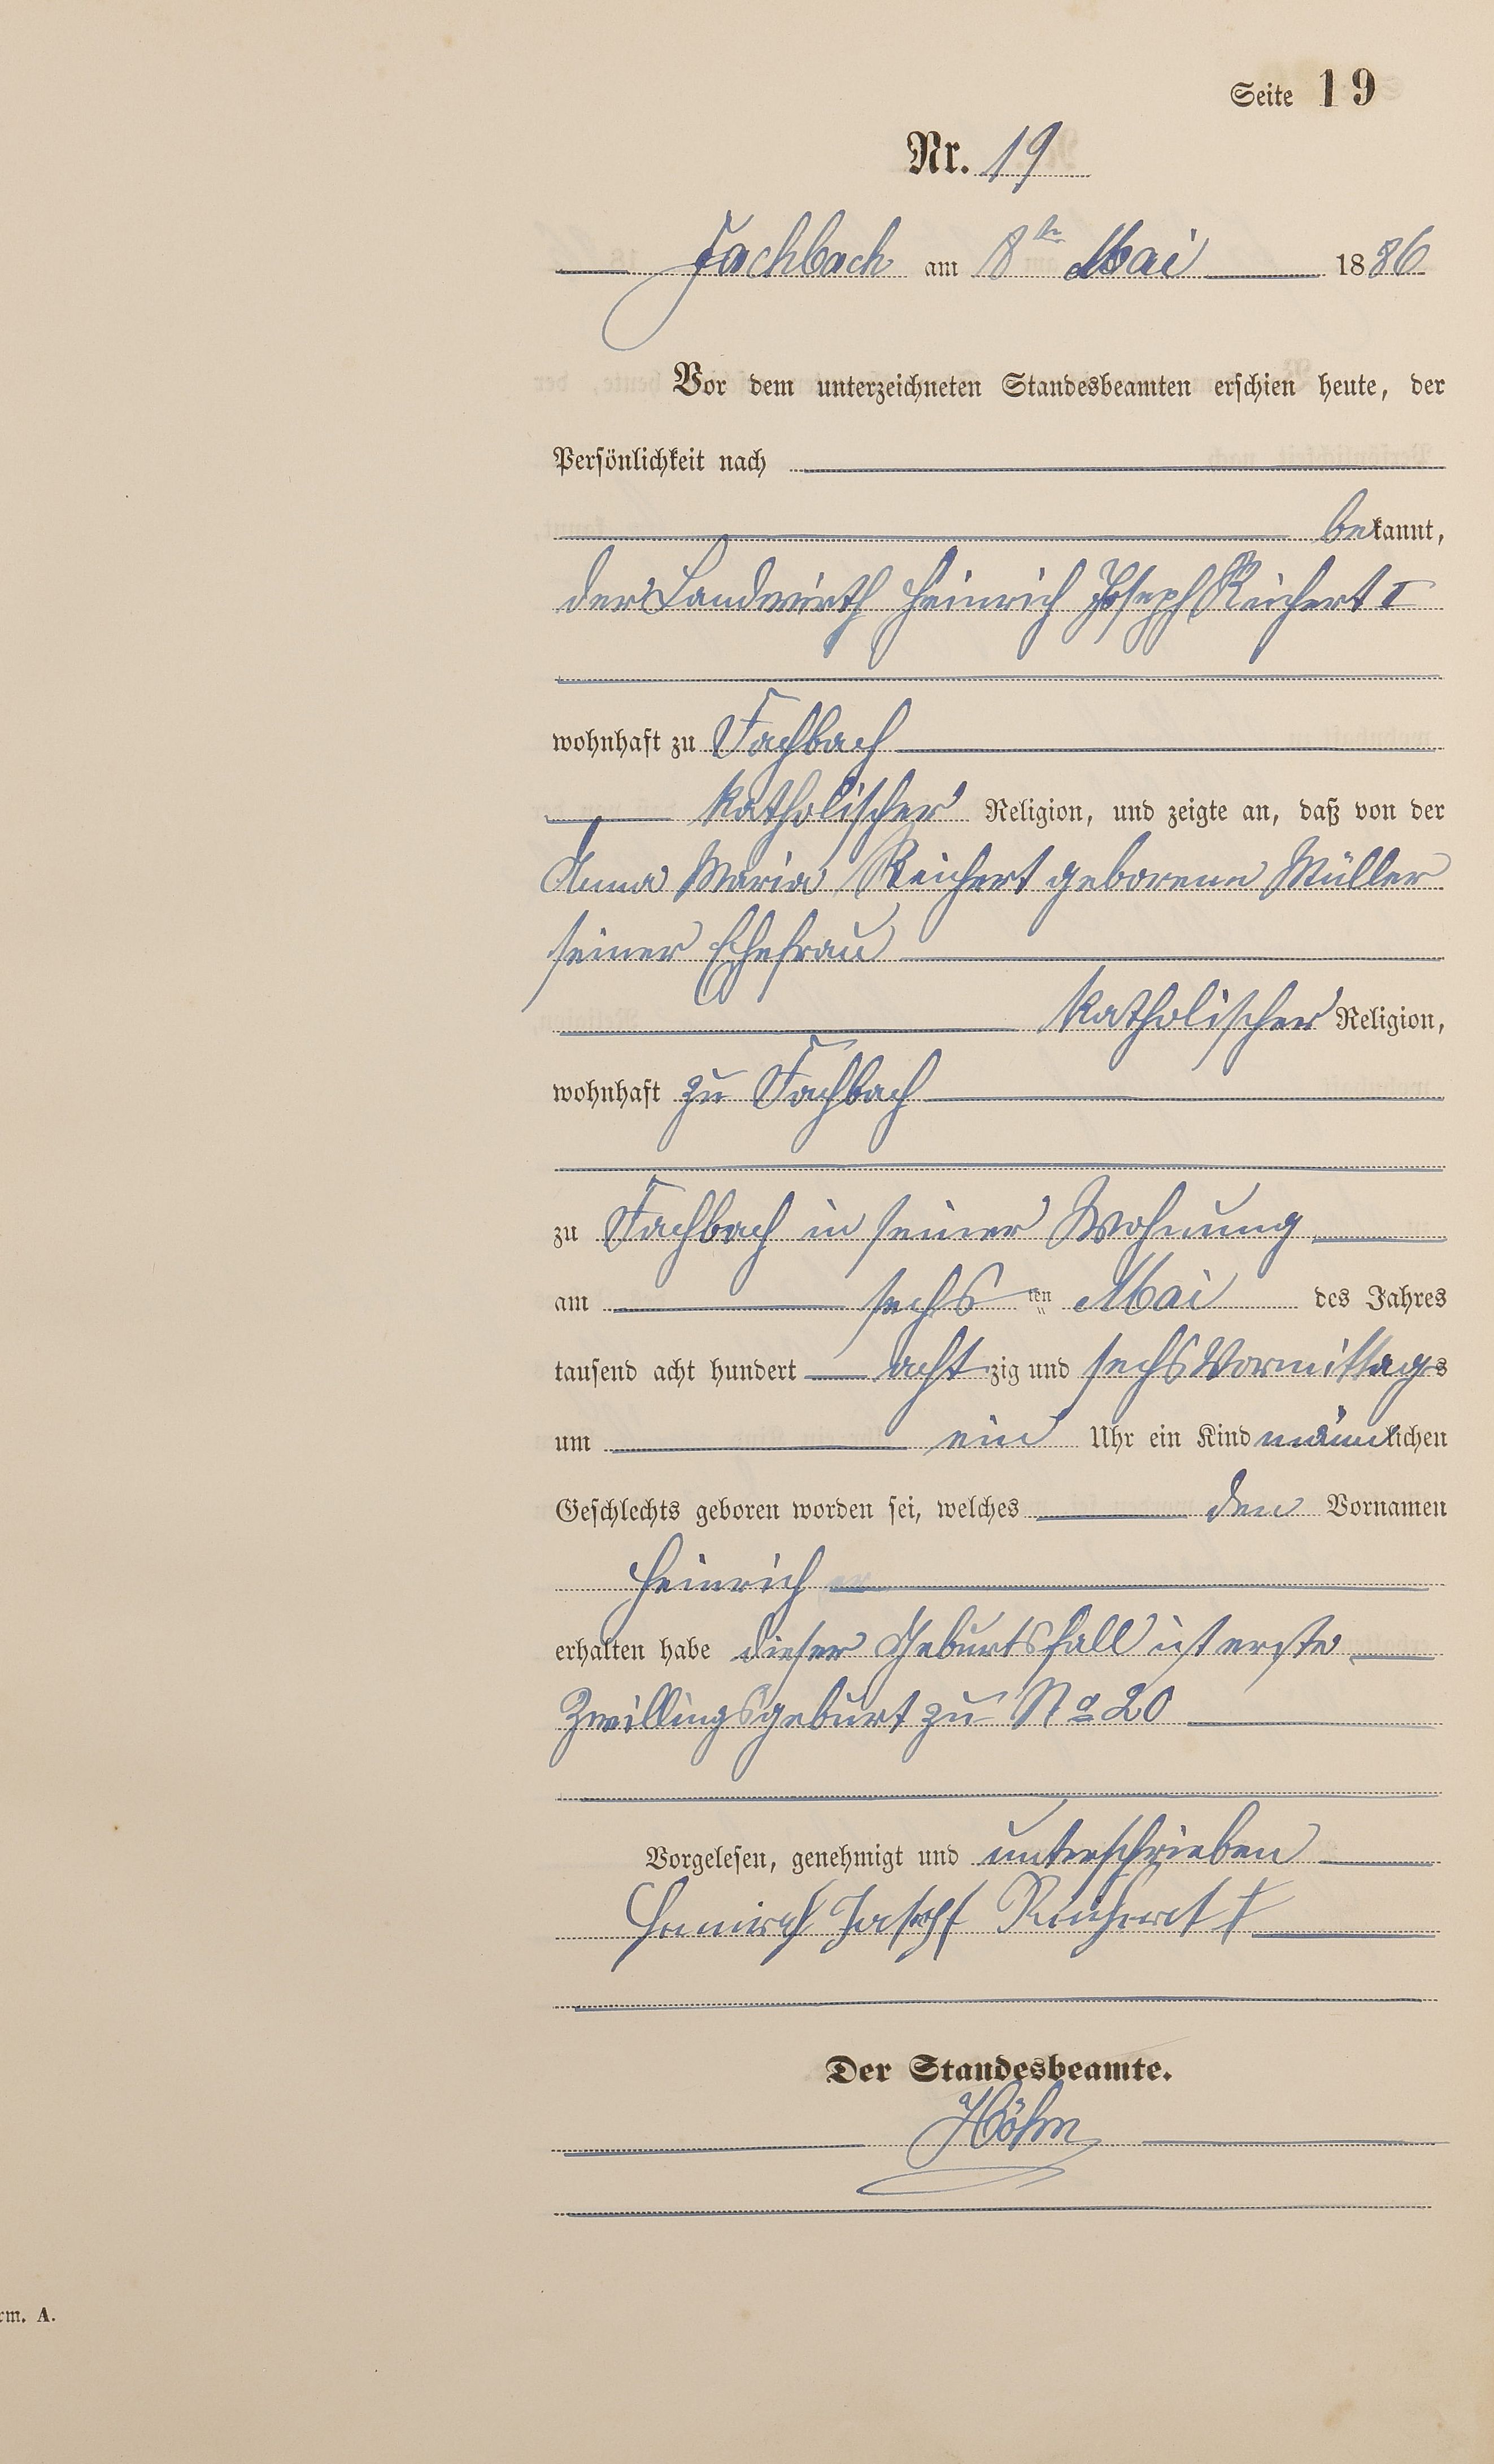 Seite 19
Nr. 19
Fachbach am 8ten Mai 1886
Vor dem unterzeichneten Standesbeamten erschien heute, der
Persönlichkeit nach
bekannt,
der Landwirth Heinrich Joseph Reichert I
wohnhaft zu Fachbach
katholischer Religion, und zeigte an, daß von der
Anna Maria Reichert geborene Müller
seiner Ehefrau
katholischer Religion,
wohnhaft zu Fachbach
zu Fachbach in seiner Wohnung
am sechsten Mai des Jahres
tausend acht hundert achtzig und sechs Vormittags
um ein Uhr ein Kind männlichen
Geschlechts geboren worden sei, welches den Vornamen
Heinrich
erhalten habe dieser Geburtsfall ist erste
Zwillingsgeburt zu No 20
Vorgelesen, genehmigt und unterschrieben
Heinrich Joseph Reichert I
Der Standesbeamte.
Höhn
rm. A.